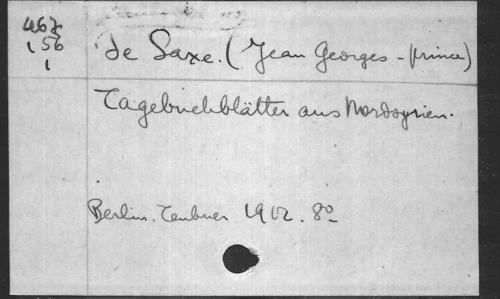 467
156
1
de Saxe. (Jean Georges - prince)
Tagebuchblätter aus Nordsyrien.
Berlin. Teubner 1912. 8º